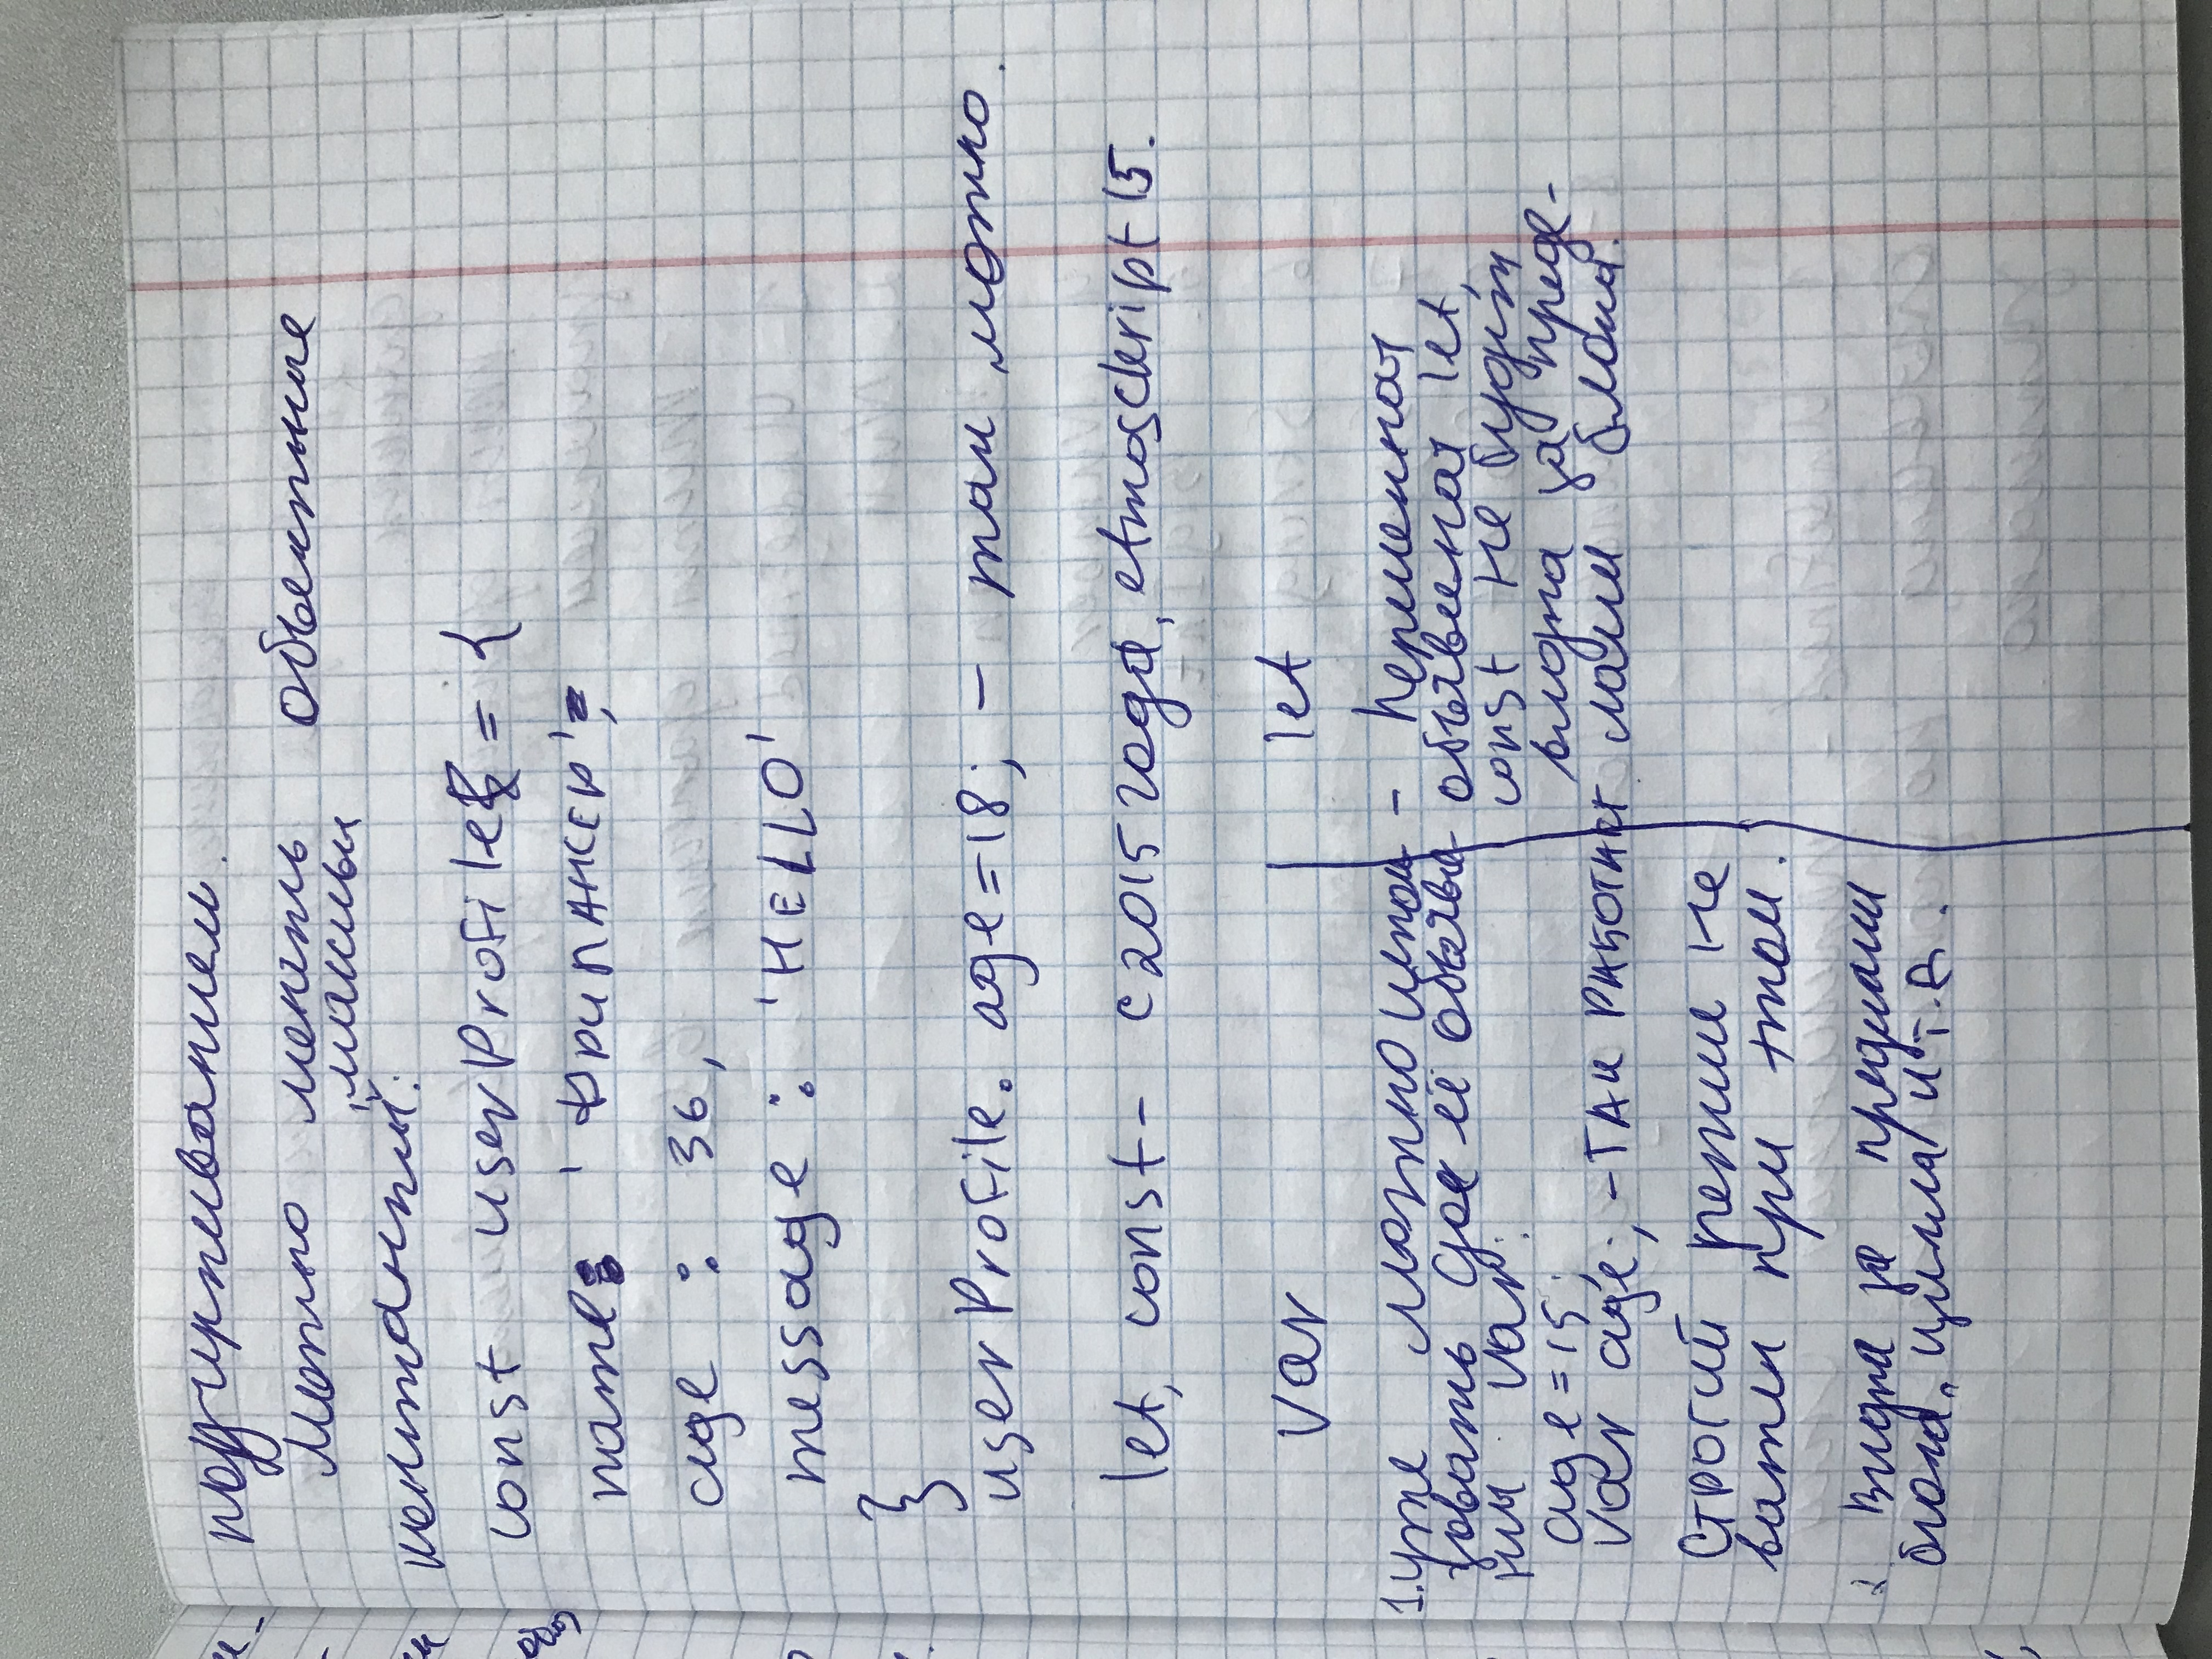 подчиркиванием.
Можно менять объектные
, массивы
контанты:
const userProfile = {
name: 'ФРИЛАНСЕР',
age : 36,
message : 'HELLO'
}
userProfile. age=18; - так можно.
let, const - с 2015 года, etmasckript 15.
var
let
1. уже можно испол
зовать до её обьявле
ния var:
age=15;
var age; - ТАК РАБОТАЕТ
Строгий режим не
важен при этом.
2. Видна за пределами
блока, цикла и т.д.
- Переменная
объявленая let,
const не будет
видна за преде-
лами блока.